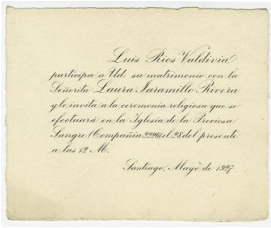 Luis Rios Valdivia
participa a Ud. su matrimonio con la
Señorita Laura Jaramillo Rivera
y le invita a la ceremonia religiosa que se
efectuará en la Iglesia de la Preciosa
Sangre (Compañía el 28 del presente
a las 12 M.
Santiago, Mayo de